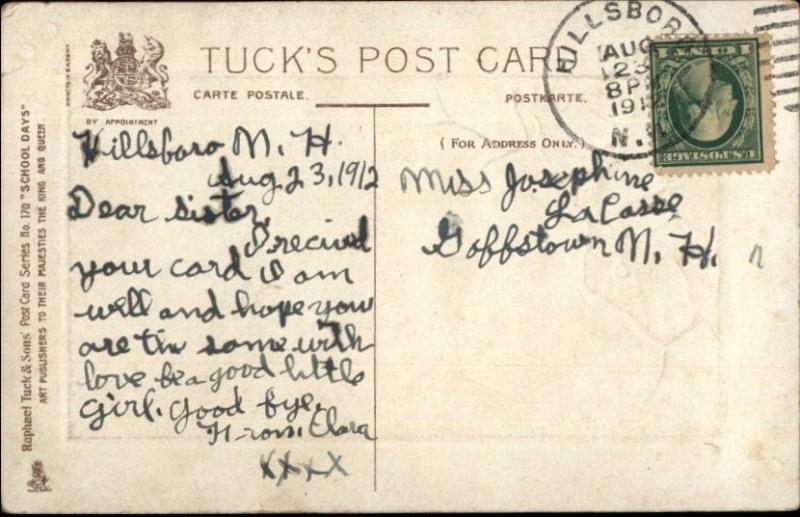 TUCK'S POST CARD
CARTE POSTALE.
POSTKARTE.
BY APPOINTMENT
(FOR ADDRESS ONLY.)
Raphael Tuck & Sons' Post Card Series No. 170 "SCHOOL DAYS"
ART PUBLISHERS TO THEIR MAJESTIES THE KING AND QUEEN.
HILLSBOR
AUG
23
8P
191
N.
U.S. POSTAGE
Hillsboro N. H.
Aug. 23, 1912
Dear sister,
I recived
your card I am
well and hope you
are the same with
love be a good little
girl. good bye.
From Clara
xxxx
Miss Josephine
LaCasse
Goffstown N. H.